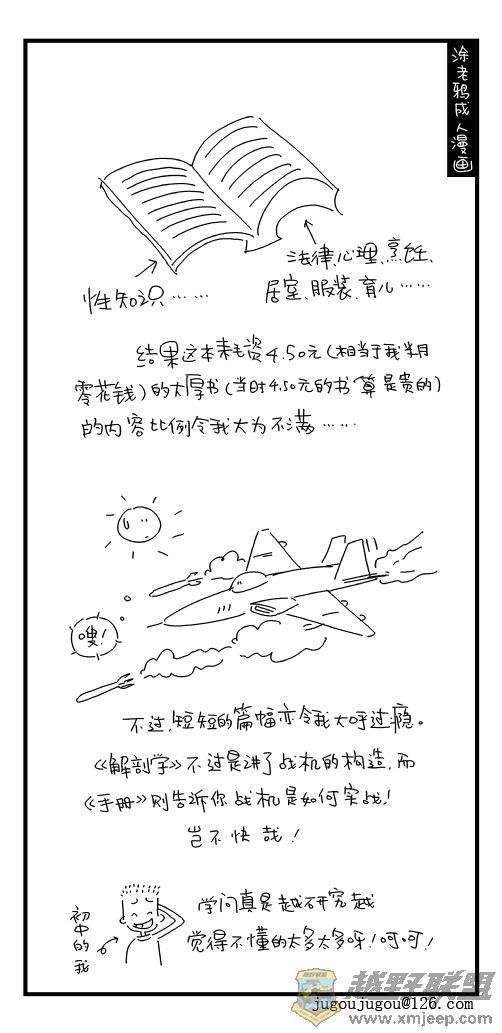 涂老鸦成人漫画
性知识……
法律、心理、烹饪、
居室、服装、育儿……
结果这本耗资4.50元(相当于我半月
零花钱)的大厚书(当时4.50元的书算是贵的)
的内容比例令我大为不满……
嗖!
不过,短短的篇幅亦令我大呼过瘾。
《解剖学》不过是讲了战机的构造,而
《手册》则告诉你战机是如何实战!
岂不快哉!
初中的我
学问真是越研究越
觉得不懂的太多太多呀!呵呵!
越野联盟
jugoujugou@126.com
www.xmjeep.com